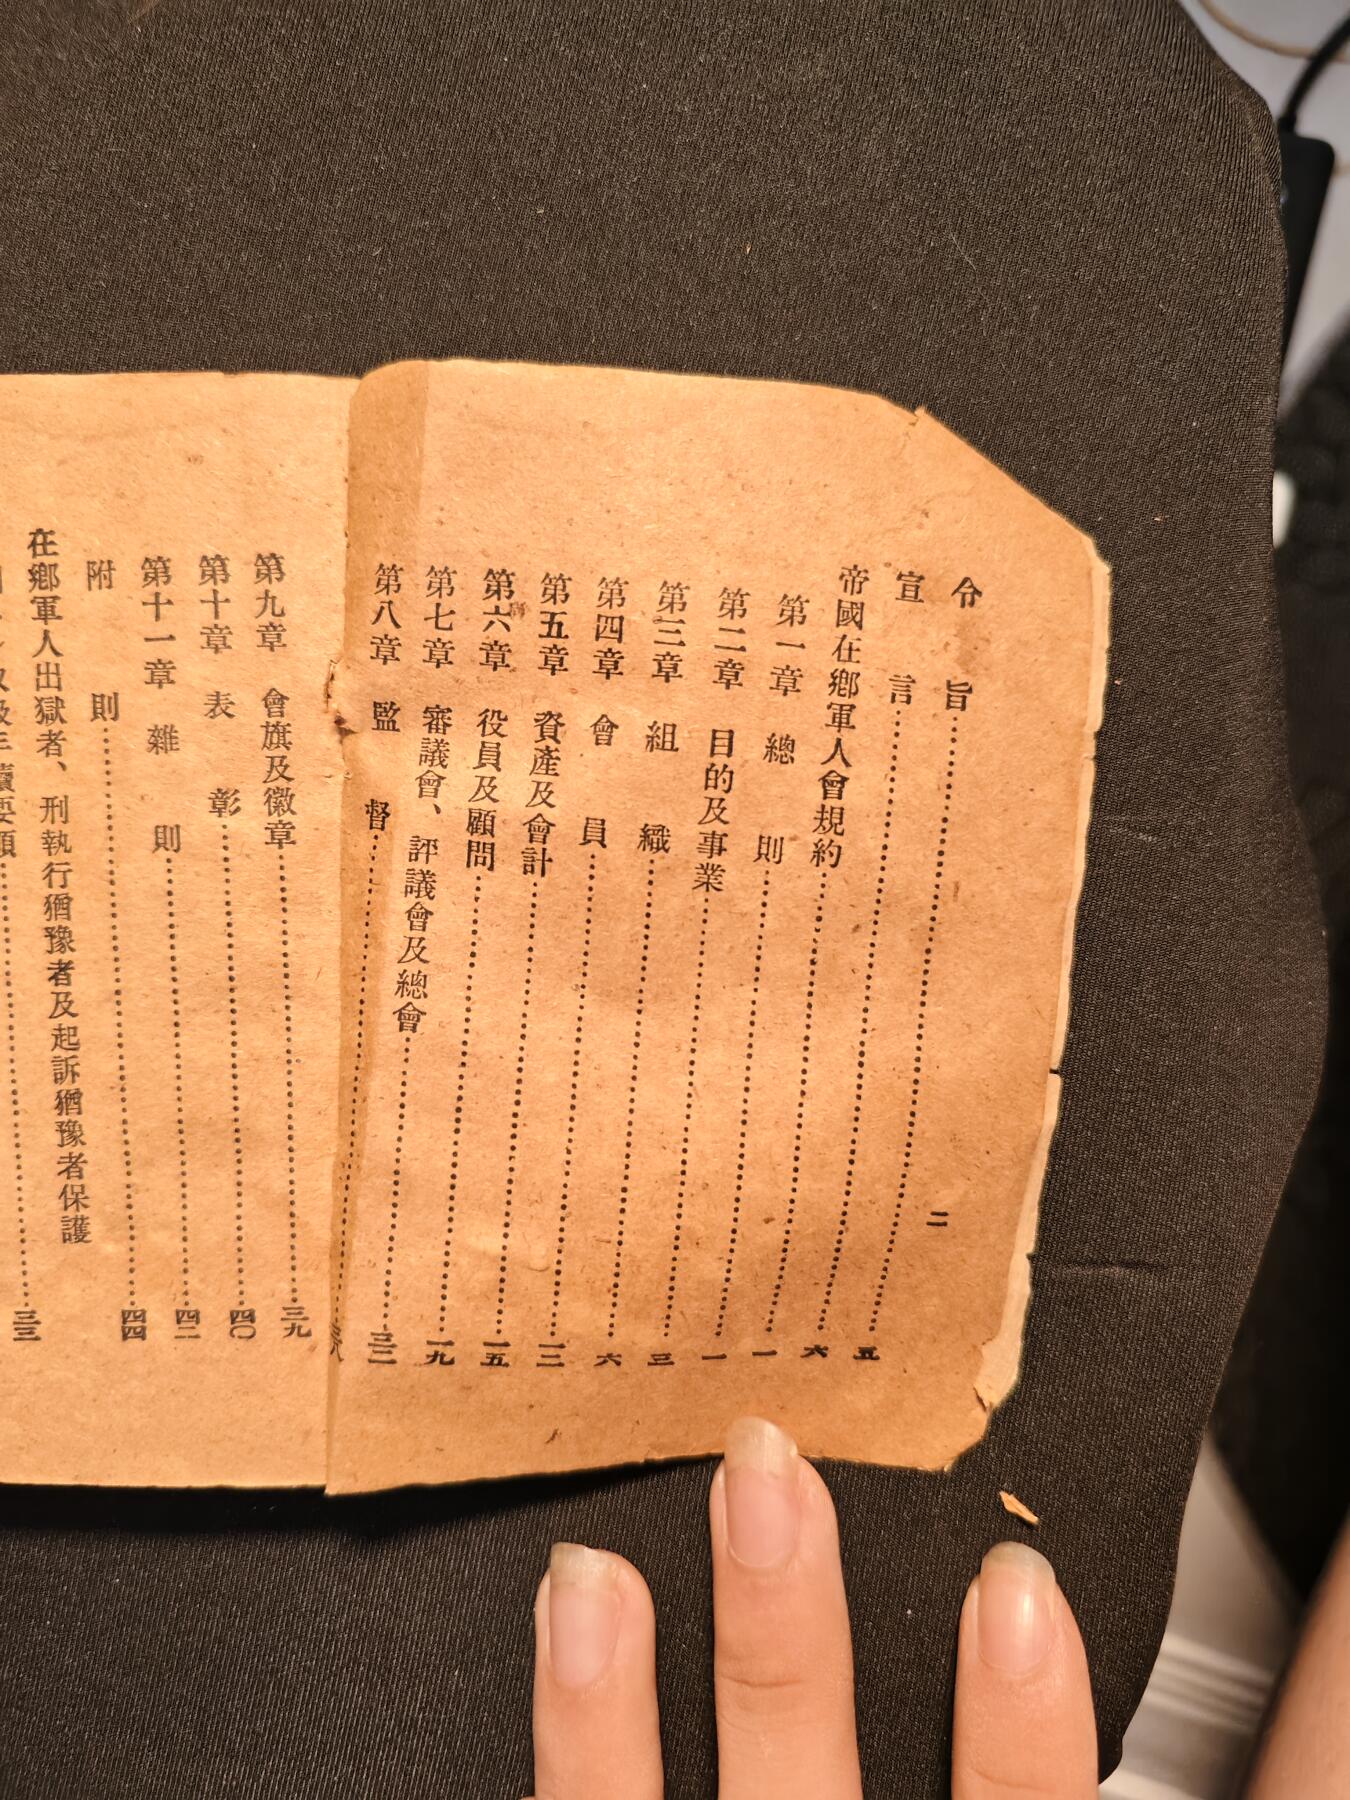 二
令旨……五
宣言……六
帝國在鄉軍人會規約……一
第一章 總則……一
第二章 目的及事業……三
第三章 組織……六
第四章 會員……一二
第五章 資產及會計……一五
第六章 役員及顧問……一九
第七章 審議會、評議會及總會……三二
第八章 監督……三八
第九章 會旗及徽章……三九
第十章 表彰……四〇
第十一章 雜則……四二
附則……四四
在鄉軍人出獄者、刑執行猶豫者及起訴猶豫者保護